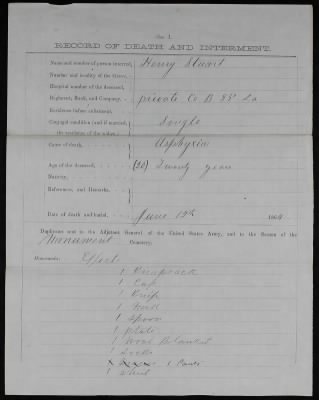 (No. 1.)
RECORD OF DEATH AND INTERMENT.
Name and number of person interred, Henry Stuart
Number and locality of the Grave,
Hospital number of the deceased,
Regiment, Rank, and Company, private Co B
Residence before enlistment,
Conjugal condition (and if married, the residence of the widow,) Single
Cause of death, Asphyxia
Age of the deceased, (20) Twenty years
Nativity,
References, and Remarks,
Date of death and burial, June 12th 1864
Duplicate sent to the Adjutant General of the United States Army, and to the Sexton of the
Monument Cemetery.
Effects
1 Knapsack
1 Cap
1 Knife
1 Fork
1 Spoon
1 plate
1 Wool Blanket
1 Socks
1 Pants
1 Shirt